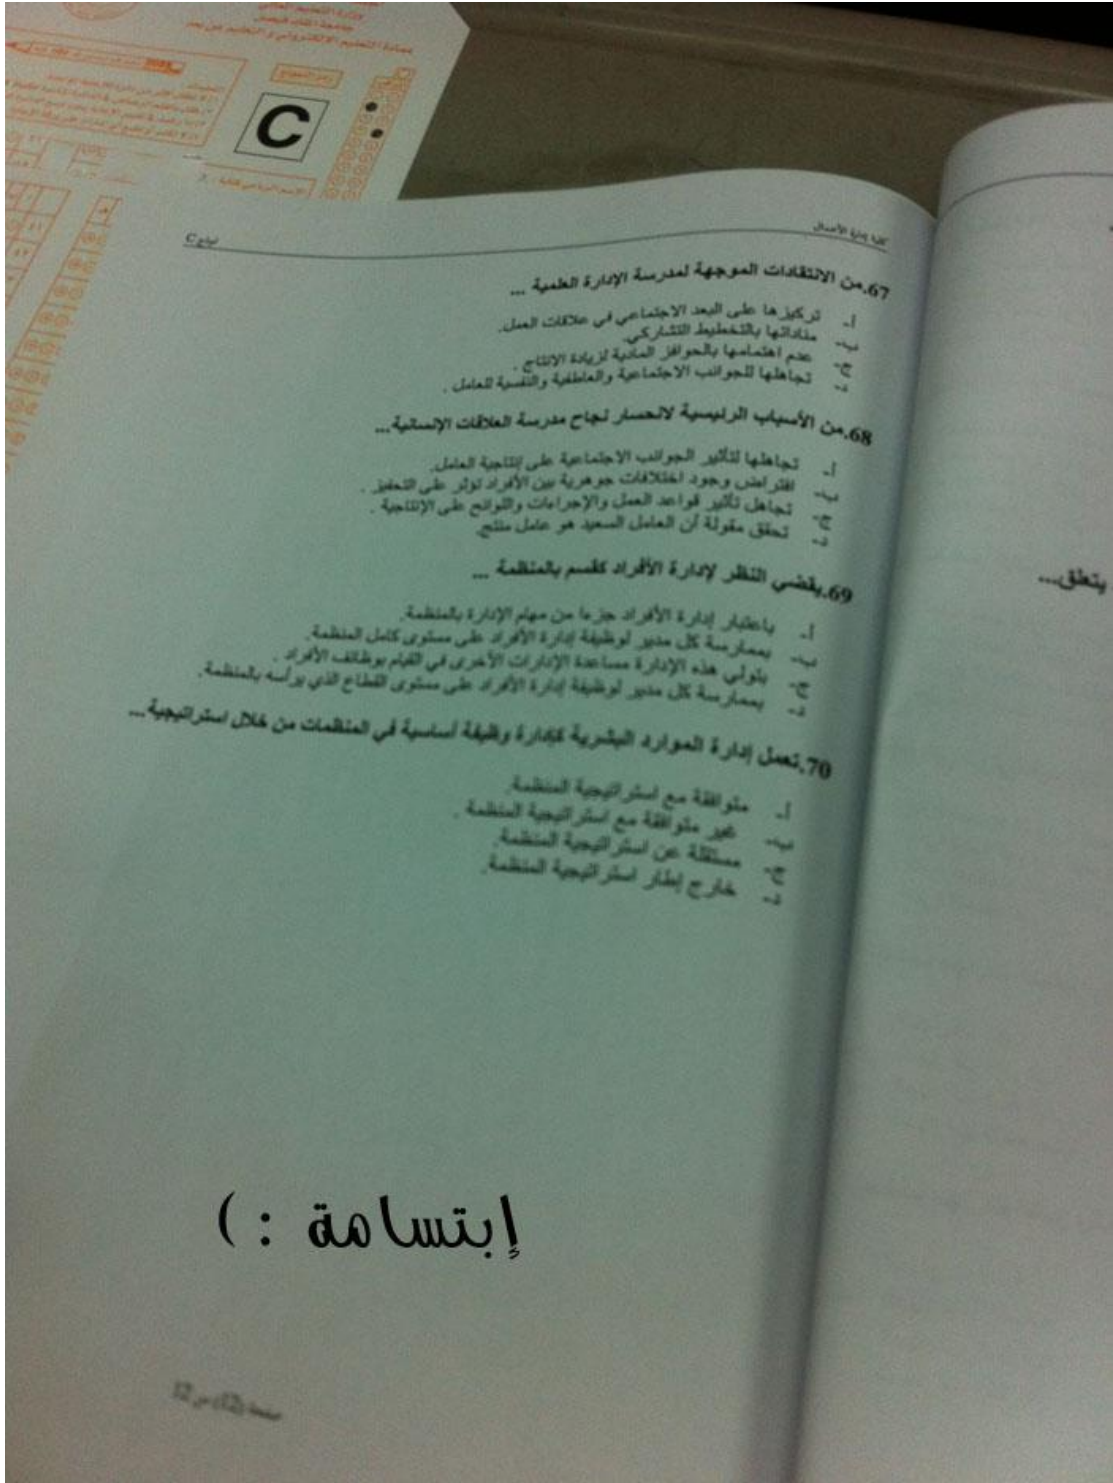 وزارة التعليم العالي
جامعة الملك فيصل
عمادة التعليم الإلكتروني والتعليم عن بعد
رمز النموذج
C
كلية إدارة الأعمال
نموذج C
67.من الانتقادات الموجهة لمدرسة الإدارة العلمية ...
أ- تركيزها على البعد الاجتماعي في علاقات العمل.
ب- مناداتها بالتخطيط التشاركي.
ج- عدم اهتمامها بالحوافز المادية لزيادة الانتاج .
د- تجاهلها للجوانب الاجتماعية والعاطفية والنفسية للعامل .
68.من الأسباب الرئيسية لانحسار نجاح مدرسة العلاقات الإنسانية...
أ- تجاهلها لتأثير الجوانب الاجتماعية على إنتاجية العامل.
ب- افتراض وجود اختلافات جوهرية بين الأفراد تؤثر على التحفيز .
ج- تجاهل تأثير قواعد العمل والإجراءات واللوائح على الإنتاجية .
د- تحقق مقولة أن العامل السعيد هو عامل منتج.
69.يقضي النظر لإدارة الأفراد كقسم بالمنظمة ...
أ- باعتبار إدارة الأفراد جزءا من مهام الإدارة بالمنظمة.
ب- بممارسة كل مدير لوظيفة إدارة الأفراد على مستوى كامل المنظمة.
ج- بتولي هذه الإدارة مساعدة الإدارات الأخرى في القيام بوظائف الأفراد .
د- بممارسة كل مدير لوظيفة إدارة الأفراد على مستوى القطاع الذي يرأسه بالمنظمة.
70.تعمل إدارة الموارد البشرية كإدارة وظيفة أساسية في المنظمات من خلال استراتيجية...
أ- متوافقة مع استراتيجية المنظمة.
ب- غير متوافقة مع استراتيجية المنظمة .
ج- مستقلة عن استراتيجية المنظمة.
د- خارج إطار استراتيجية المنظمة.
يتعلق...
إبتسامة : )
صفحة (12) من 12